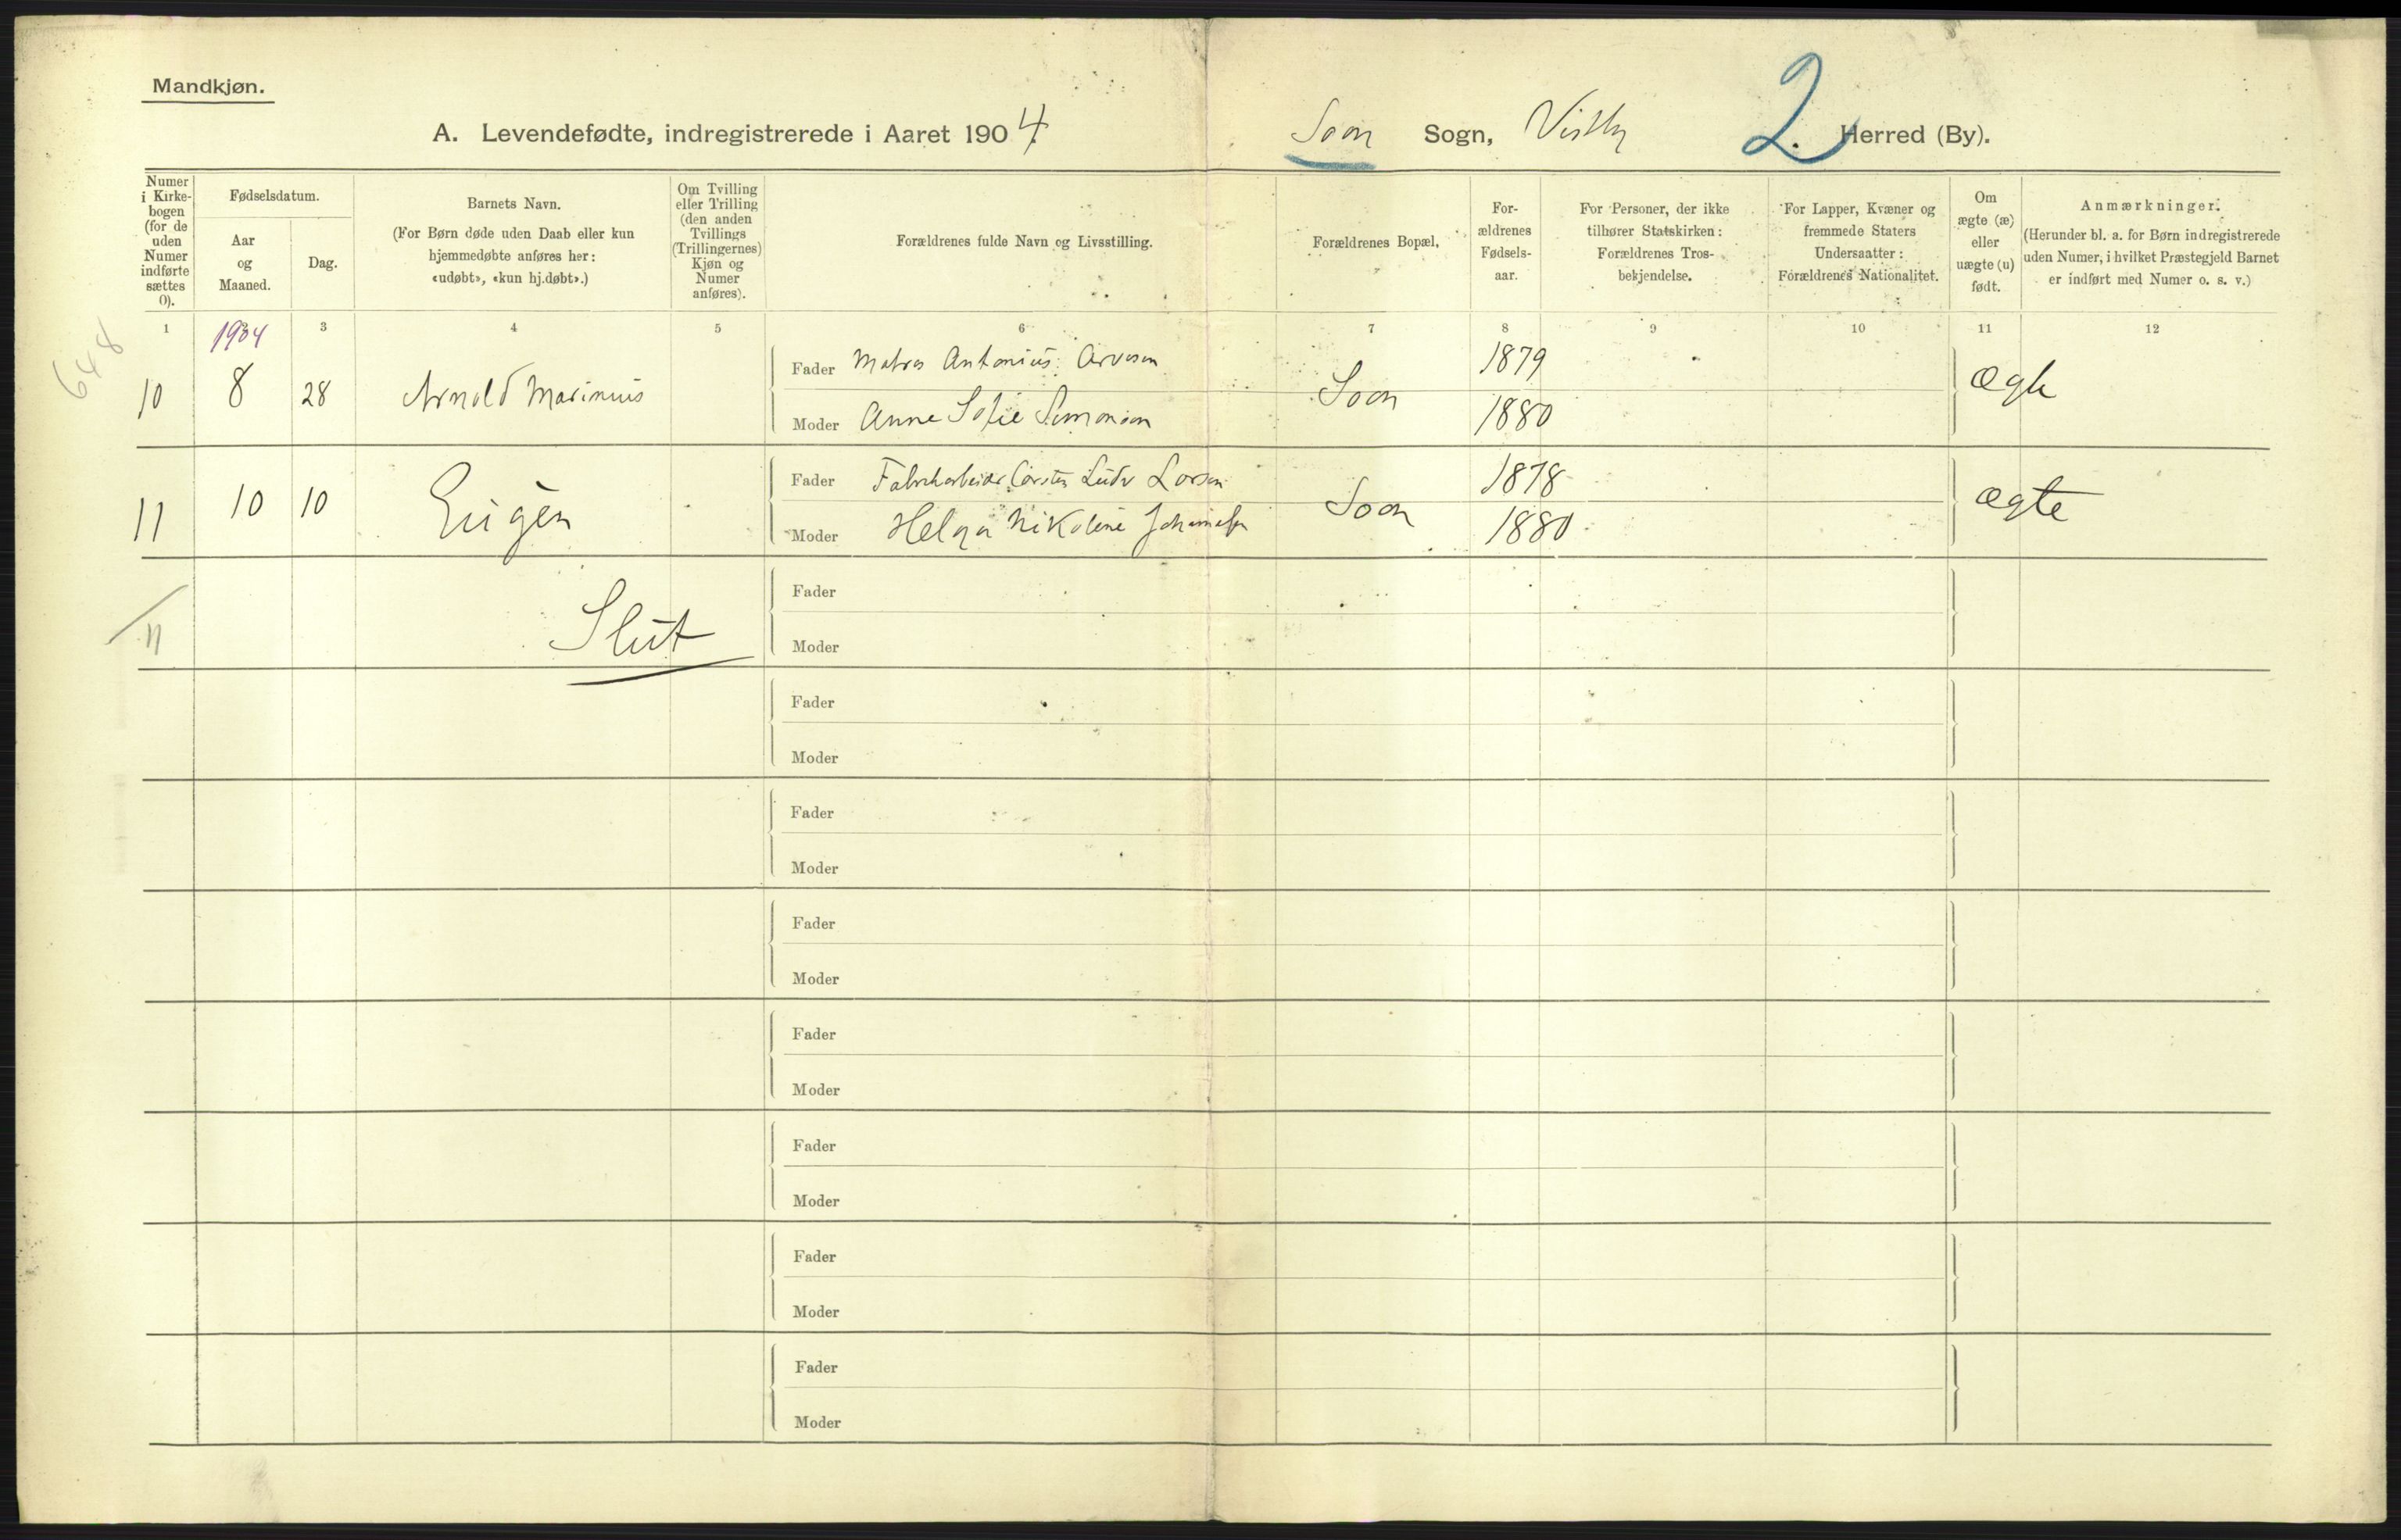 Mandkjøn.
A. Levendefødte, indregistrerede i Aaret 1904.
Soon Sogn, Vestby Herred (By).
2.
Numer i Kirkebogen (for de uden Numer indførte sættes 0).
Fødselsdatum.
Aar og Maaned.
Dag.
Barnets Navn.
(For Børn døde uden Daab eller kun hjemmedøbte anføres her: «udøbt», «kun hj.døbt».)
Om Tvilling eller Trilling (den anden Tvillings (Trillingernes) Kjøn og Numer anføres).
Forældrenes fulde Navn og Livsstilling.
Forældrenes Bopæl.
Forældrenes Fødselsaar.
For Personer, der ikke tilhører Statskirken: Forældrenes Trosbekjendelse.
For Lapper, Kvæner og fremmede Staters Undersaatter: Forældrenes Nationalitet.
Om ægte (æ) eller uægte (u) født.
Anmærkninger.
(Herunder bl. a. for Børn indregistrerede uden Numer, i hvilket Præstegjeld Barnet er indført med Numer o. s. v.)
1 3 4 5 6 7 8 9 10 11 12
1904
648
10 8 28 Arnold Marinius Fader Matros Antonius Arvesen Soon 1879 ægte
Moder Anne Sofie Simonsen 1880
11 10 10 Eugèn Fader Fabrikarbeider Carsten Ludv Larsen Soon 1878 ægte
Moder Helga Nikoline Johannesen 1880
11
Slut
Fader
Moder
Fader
Moder
Fader
Moder
Fader
Moder
Fader
Moder
Fader
Moder
Fader
Moder
Fader
Moder